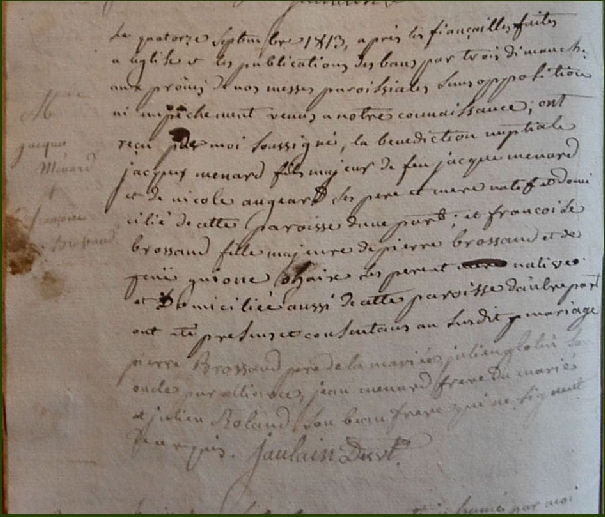 Le quatorze septembre 1813, apres les fiançailles faites
a eglise et les publications des bans par trois dimanch.
aux prônes de nos messes paroissiales sans opposition
ni empêchement venus a notre connaissance, ont
reçu par moi soussigné, la benediction nuptiale
jacques menard fils majeur de feu jacque menard
et de nicole augeard ses pere et mere natif et domi
cilié de cette paroisse d'une part; et francoise
brossaud fille majeure de pierre brossaud et de
feuë guionne ses native
et Domiciliée aussi de cette paroisse d'autre part
ont été presens et consentans au susdit mariage
pierre Brossaud pere de la mariée, julien son
oncle par alliance, jean menard frere du marié
et julien Roland son beau frere qui ne signent
Jaulain Dert.
M
jacque
Menard
et
francoise
Brossaud
par moi